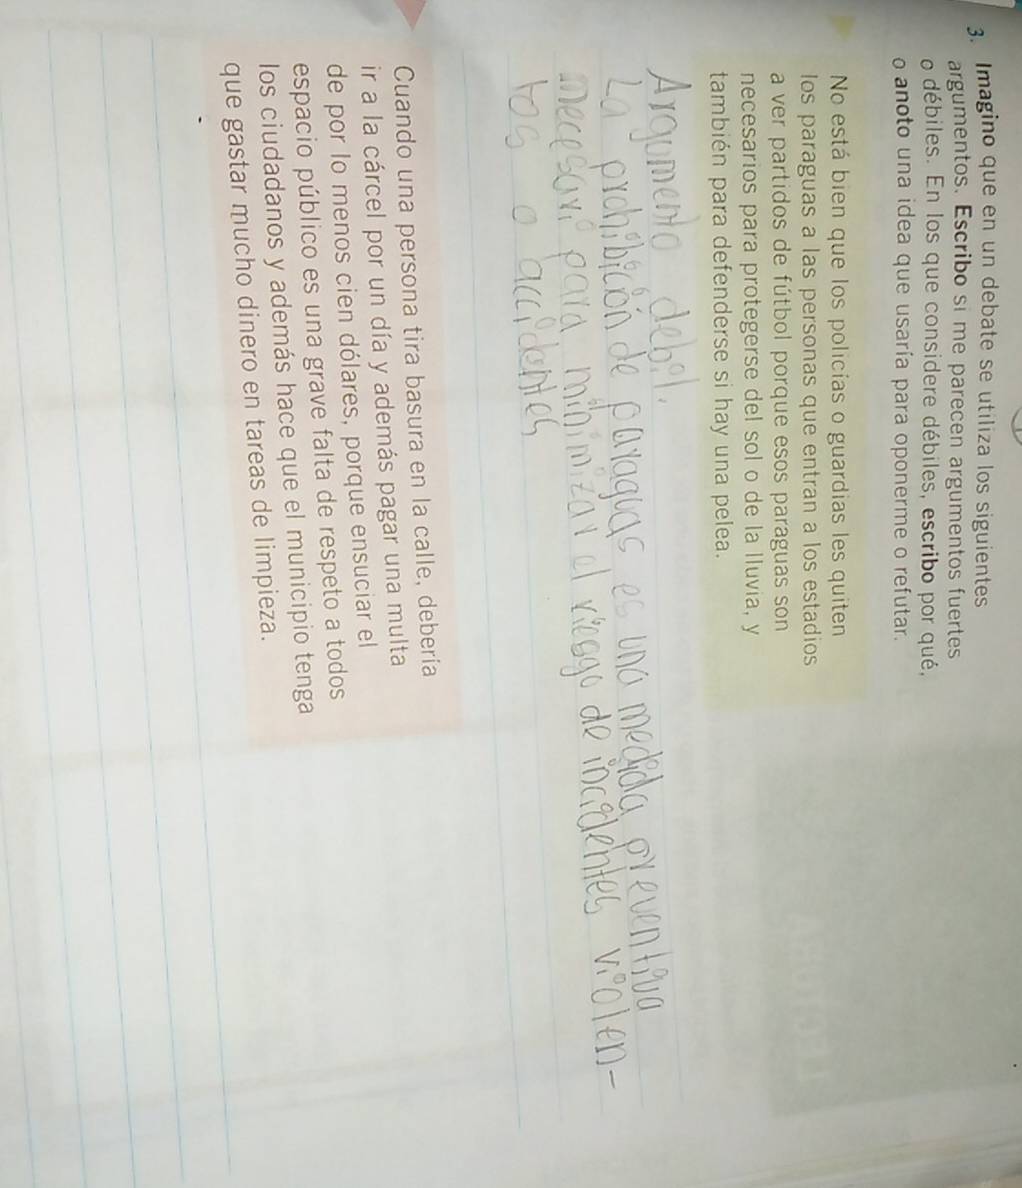 3. Imagino que en un debate se utiliza los siguientes
argumentos. Escribo si me parecen argumentos fuertes
o débiles. En los que considere débiles, escribo por qué,
o anoto una idea que usaría para oponerme o refutar.
No está bien que los policías o guardias les quiten
los paraguas a las personas que entran a los estadios
a ver partidos de fútbol porque esos paraguas son
necesarios para protegerse del sol o de la lluvia, y
también para defenderse si hay una pelea.
Argumento debil.
La prohibición de paraguas es una medida preventiva
necesari para minimizar el riesgo de incidentes violen-
tos o accidentes
Cuando una persona tira basura en la calle, debería
ir a la cárcel por un día y además pagar una multa
de por lo menos cien dólares, porque ensuciar el
espacio público es una grave falta de respeto a todos
los ciudadanos y además hace que el municipio tenga
que gastar mucho dinero en tareas de limpieza.